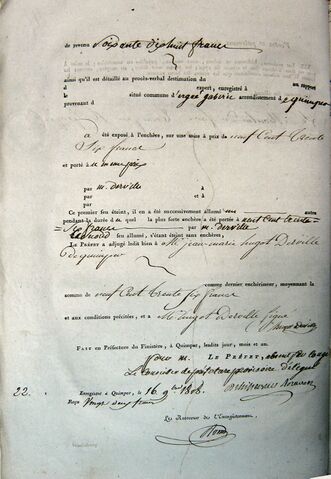 de revenu Soixante dixhuit francs
ainsi qu'il est détaillé au procès-verbal d'estimation du
au rapport
d expert, enregistré à
situé commune d'ergué gaberic arrondissement de quimper
provenant d
a été exposé à l'enchère, sur une mise à prix de neuf Cent trente
Six francs
et porté à
par m. derville à
par à
Ce premier feu éteint, il en a été successivement allumé autre
pendant la durée d quel la plus forte enchère a été portée à neuf Cent trente
Six francs par m. derville
feu allumé, s'étant éteint sans enchères,
Le Préfet a adjugé ledit bien à M. jean-marie hugot Derville
De quimper
comme dernier enchérisseur, moyennant la
somme de neuf Cent trente Six francs
et aux conditions précitées, et a M. hugot Derville signé
hugot Derville
Fait en Préfecture du Finistère, à Quimper, lesdits jour, mois et an.
Pour m. Le Préfet, absent
Le Conseiller de préfecture provisoire délégué
22. Enregistré à Quimper, le 16 9bre 1808.
Reçu Vingt deux francs
Le Receveur de l'Enregistrement.